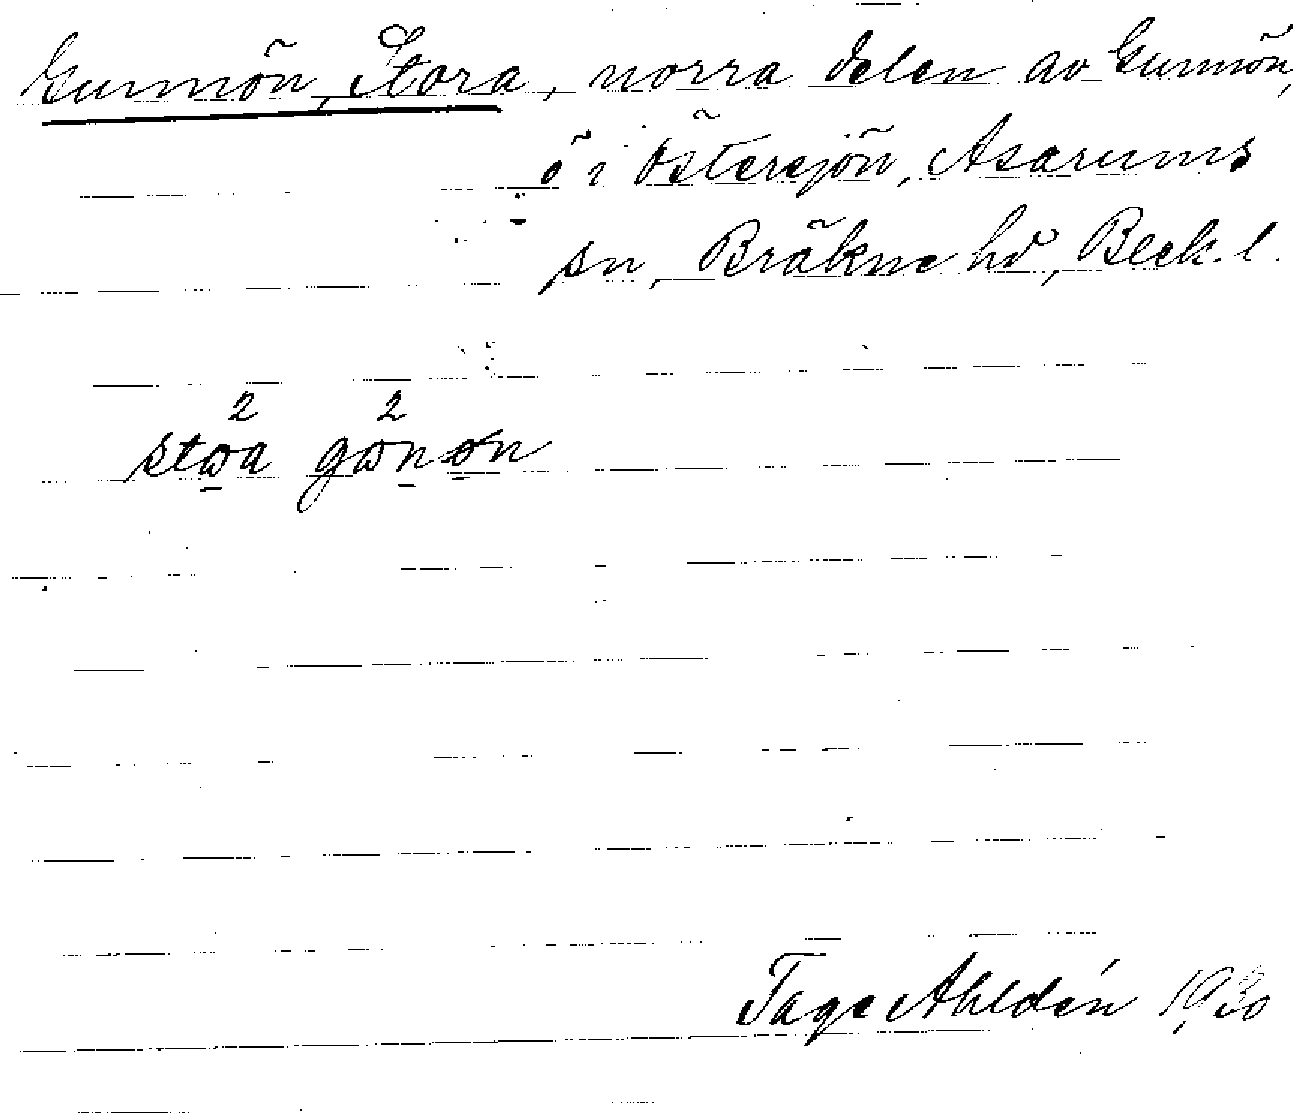 Gunnön, Stora, norra delen av Gunnön,
ö i Östersjön, Asarums
sn, Bräkne hd, Blek. l.
2 2
Tage Ahldén 1930